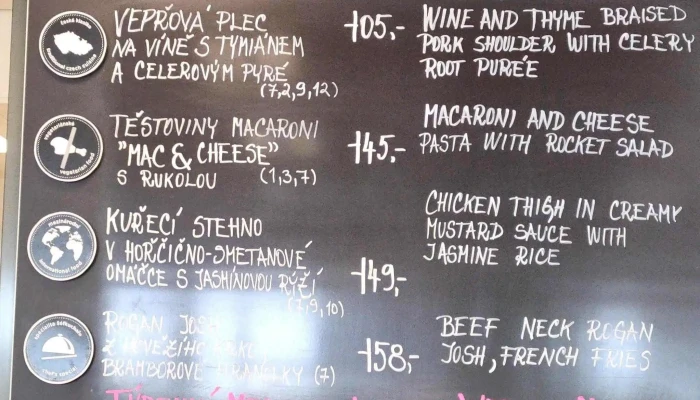 VEPŘOVÁ PLEC
NA VÍNĚ S TYMIÁNEM
A CELEROVÝM PYRÉ
(7,2,9,12)
105,-
WINE AND THYME BRAISED
PORK SHOULDER WITH CELERY
ROOT PURÉE
TĚSTOVINY MACARONI
"MAC & CHEESE"
S RUKOLOU (1,3,7)
145,-
MACARONI AND CHEESE
PASTA WITH ROCKET SALAD
vegetariánské
vegetarian food
KUŘECÍ STEHNO
V HOŘČIČNO-SMETANOVÉ
OMÁČCE S JASMÍNOVOU RÝŽÍ
(7,9,10)
149,-
CHICKEN THIGH IN CREAMY
MUSTARD SAUCE WITH
JASMINE RICE
international food
ROGAN JOSH
Z HOVĚZÍHO KRKU,
BRAMBOROVÉ HRANOLKY (7)
158,-
BEEF NECK ROGAN
JOSH, FRENCH FRIES